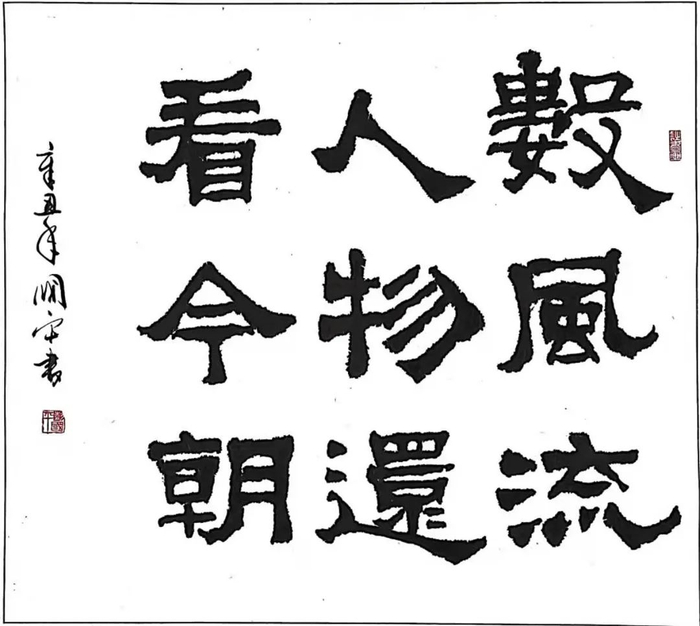 數風流
人物還
看今朝
辛丑年平書